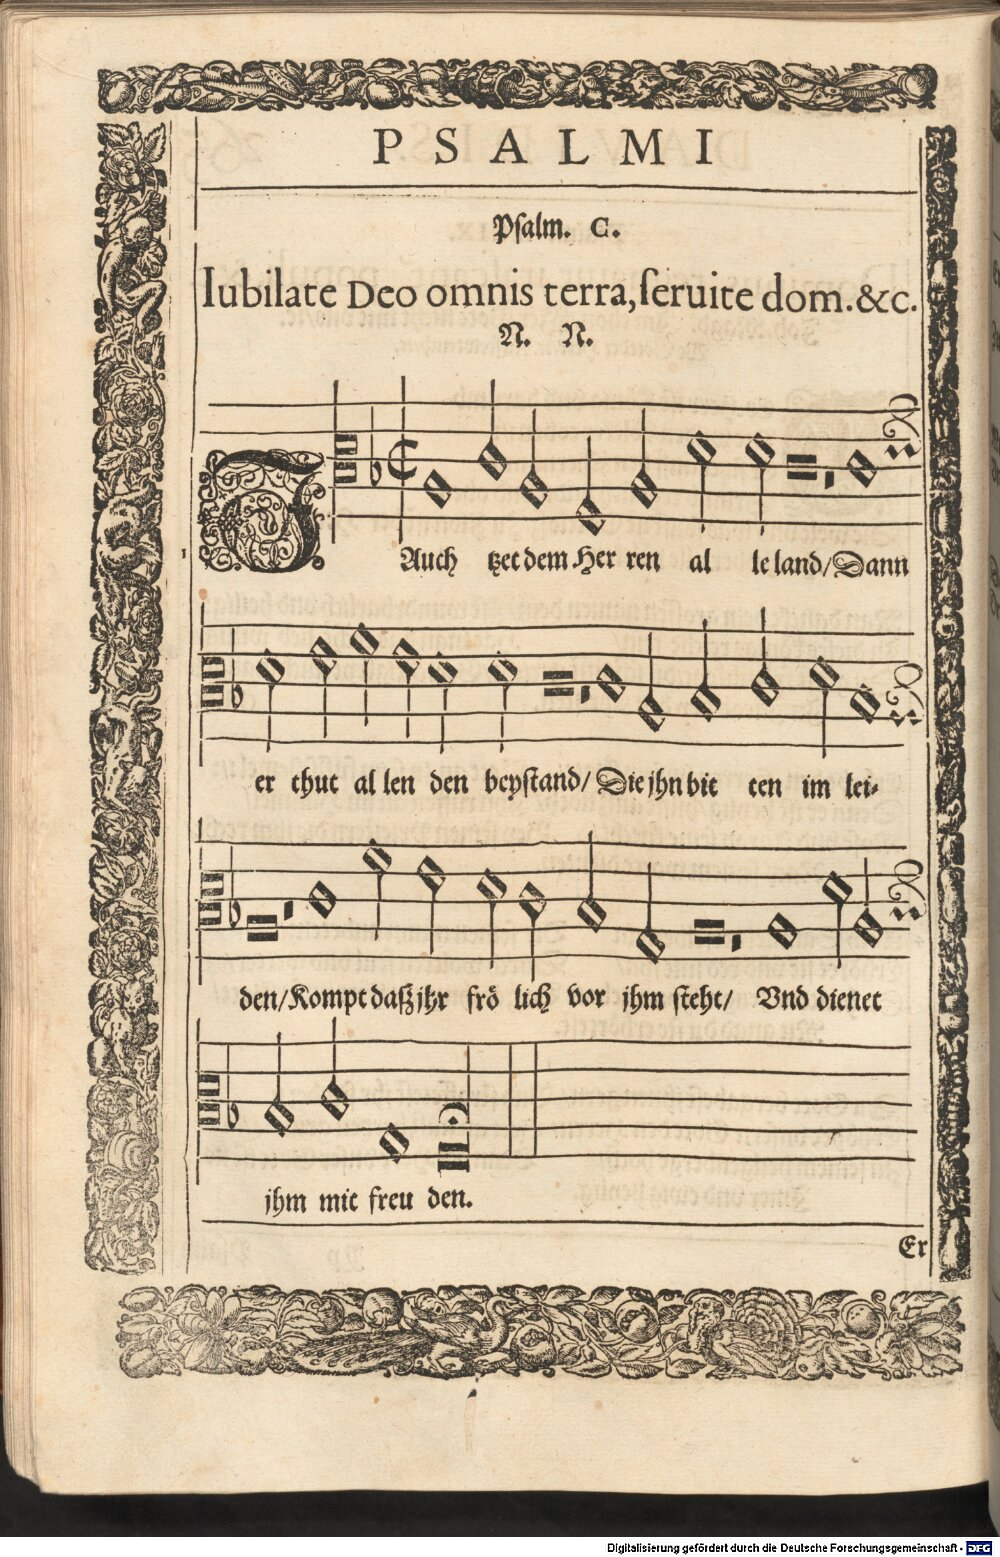 PSALMI
Psalm. C.
Iubilate Deo omnis terra, ſeruite dom. &c.
N. N.
JAuch tzet dem Her ren al le land/ Dann
er thut al len den beyſtand/ Die jhn bit ten im lei-
den/ Kompt daſz jhr frö lich vor jhm ſteht/ Vnd dienet
jhm mit freu den.
Er
Digitalisierung gefördert durch die Deutsche Forschungsgemeinschaft - DFG